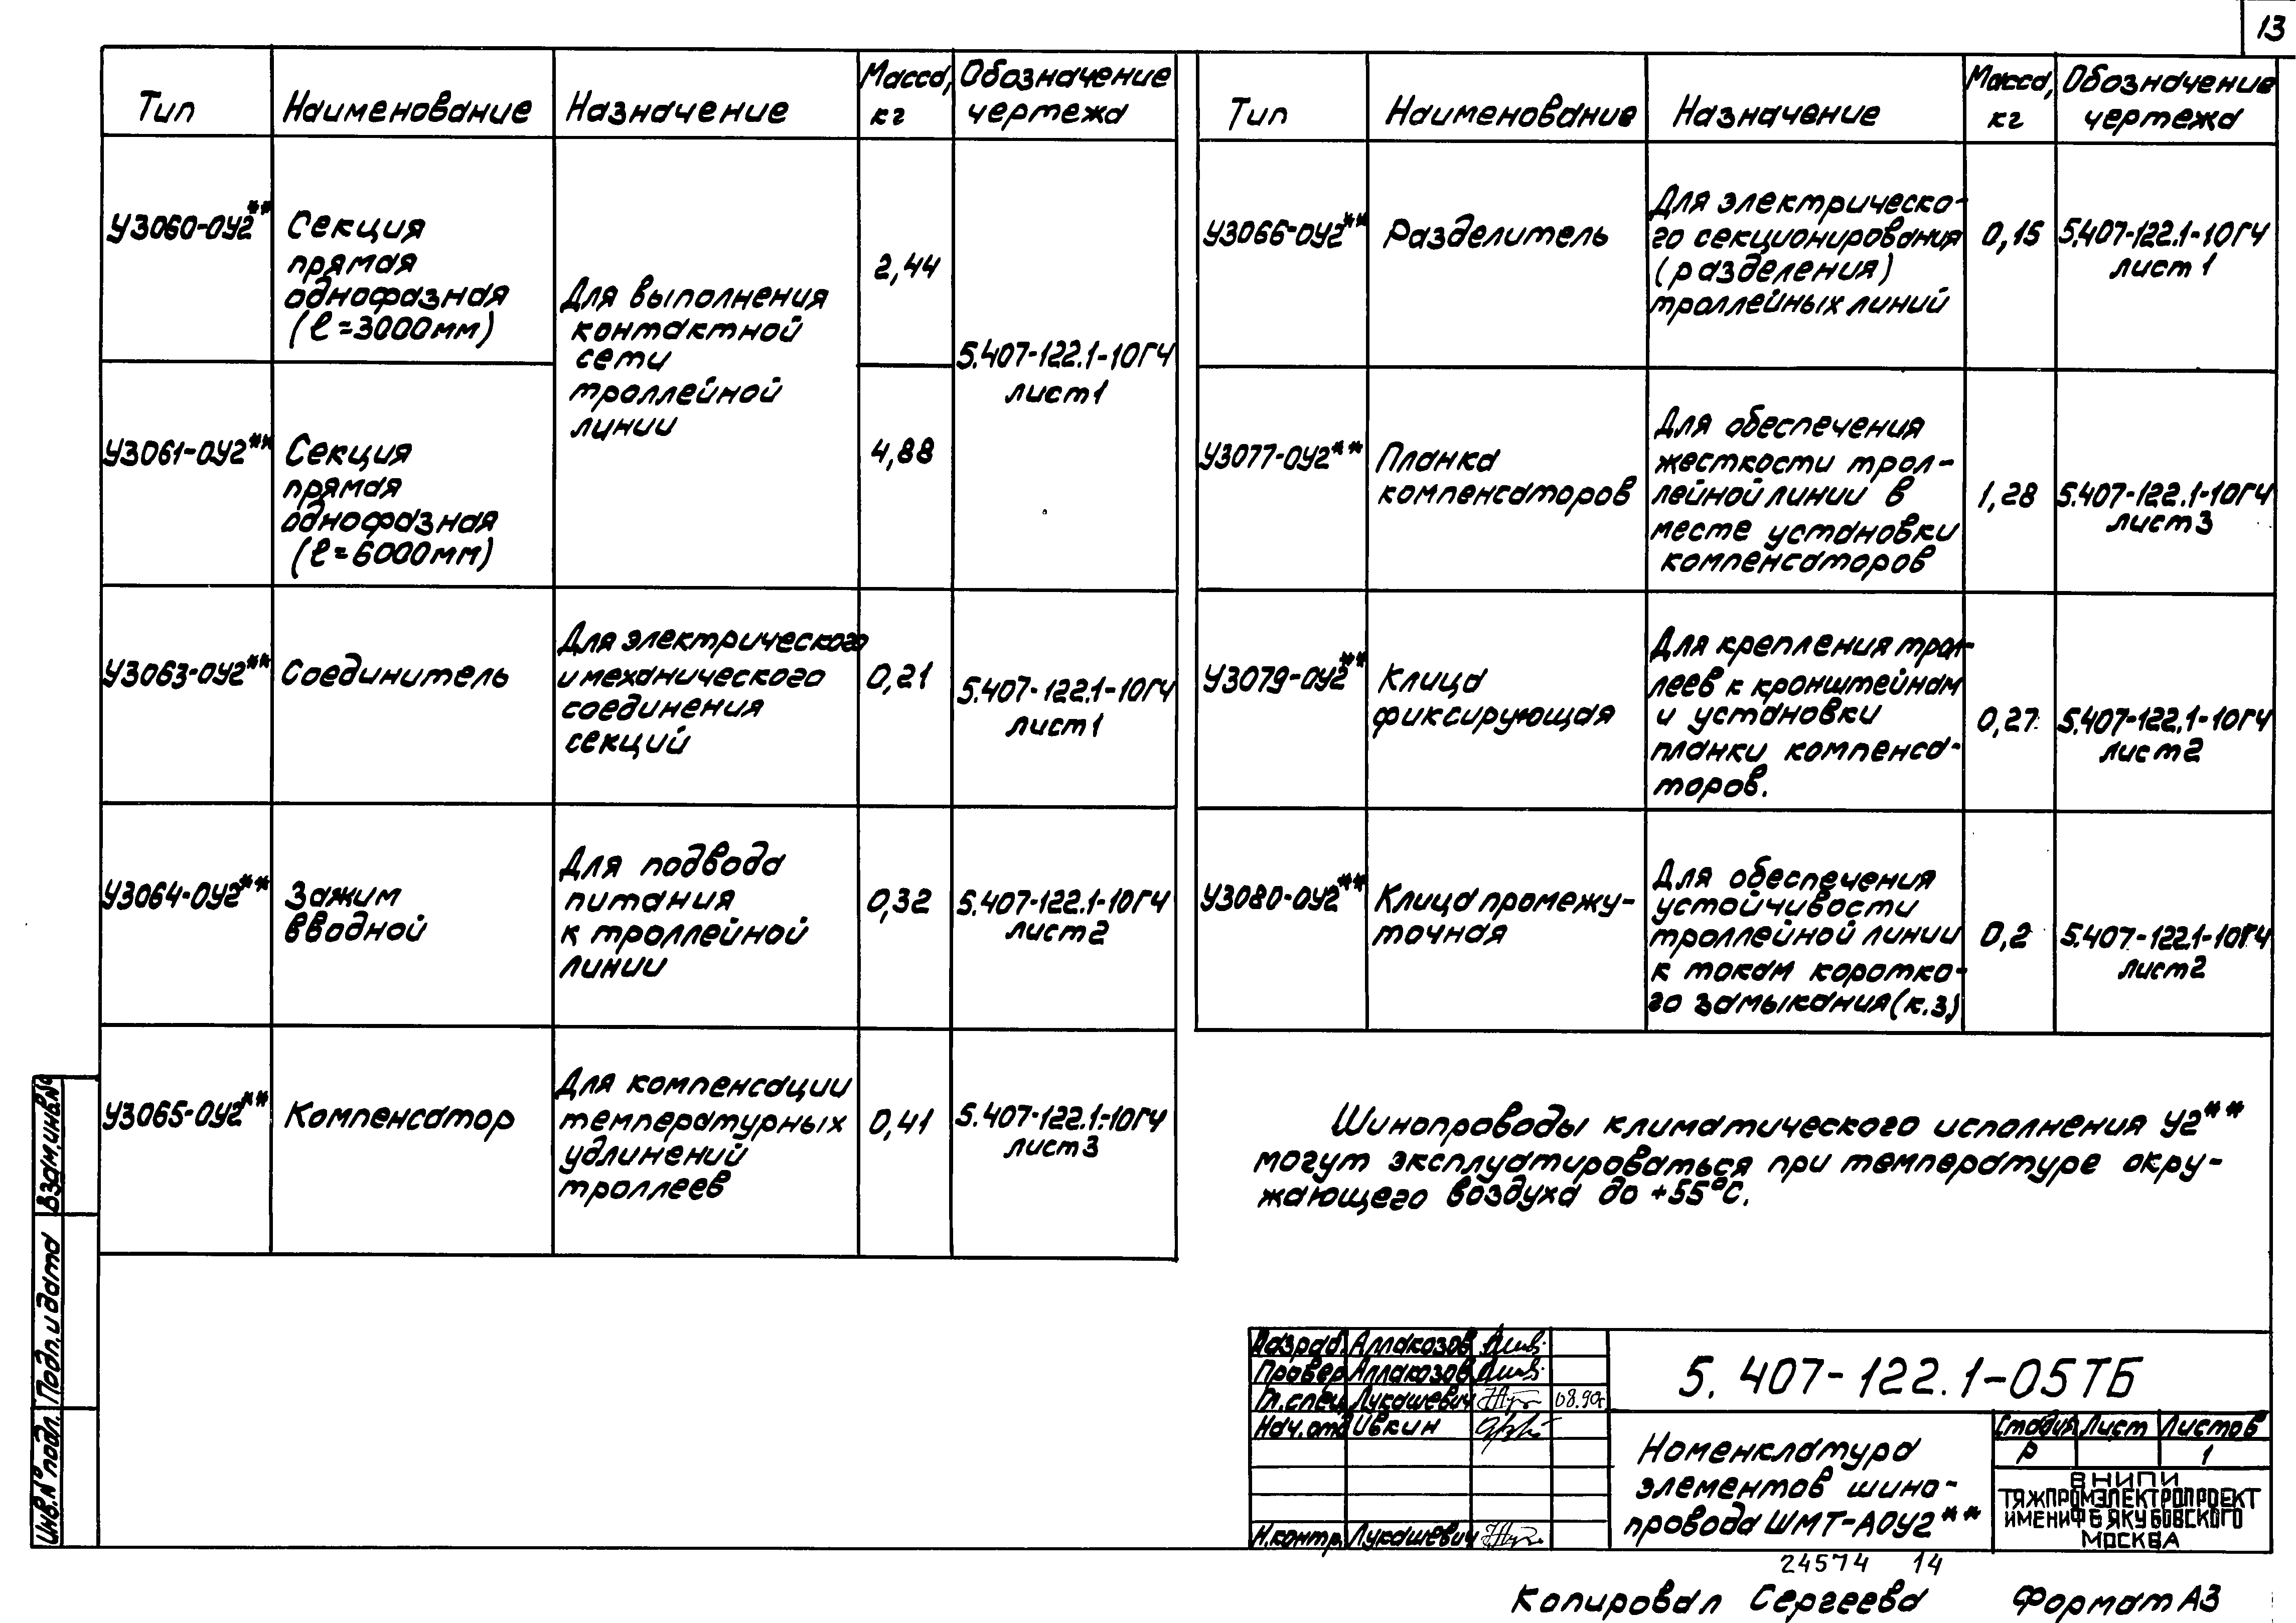 13
Тип
Наименование
Назначение
Масса,
кг
Обозначение
чертежа
У3060-0У2**
Секция
прямая
однофазная
(ℓ=3000мм)
Для выполнения
контактной
сети
троллейной
линии
2,44
5.407-122.1-10ГЧ
лист1
У3061-0У2**
Секция
прямая
однофазная
(ℓ=6000мм)
4,88
У3063-0У2**
Соединитель
Для электрического
и механического
соединения
секций
0,21
5.407-122.1-10ГЧ
лист1
У3064-0У2**
Зажим
вводной
Для подвода
питания
к троллейной
линии
0,32
5.407-122.1-10ГЧ
лист2
У3065-0У2**
Компенсатор
Для компенсации
температурных
удлинений
троллеев
0,41
5.407-122.1-10ГЧ
лист3
Тип
Наименование
Назначение
Масса,
кг
Обозначение
чертежа
У3066-0У2**
Разделитель
Для электрическо-
го секционирования
(разделения)
троллейных линий
0,15
5.407-122.1-10ГЧ
лист 1
У3077-0У2**
Планка
компенсаторов
Для обеспечения
жесткости трол-
лейной линии в
месте установки
компенсаторов
1,28
5.407-122.1-10ГЧ
лист3
У3079-0У2**
Клица
фиксирующая
Для крепления трол-
леев к кронштейнам
и установки
планки компенса-
торов.
0,27
5.407-122.1-10ГЧ
лист2
У3080-0У2**
Клица промежу-
точная
Для обеспечения
устойчивости
троллейной линии
к токам коротко-
го замыкания(к.з)
0,2
5.407-122.1-10ГЧ
лист2
Шинопроводы климатического исполнения У2**
могут эксплуатироваться при температуре окру-
жающего воздуха до +55°С.
Взам.инв.№
Подп. и дата
Инв.№ подл.
Разраб. Аллакозов
Провер Аллакозов
Гл.спец. Лукашевич 08.90г
Нач.отд Ивкин
Н.контр. Лукашевич
5.407-122.1-05ТБ
Номенклатура
элементов шино-
провода ШМТ-А0У2**
Стадия Лист Листов
Р 1
ВНИПИ
ТЯЖПРОМЭЛЕКТРОПРОЕКТ
ИМЕНИ Ф Б ЯКУБОВСКОГО
МОСКВА
24574 14
Копировал Сергеева Формат А3